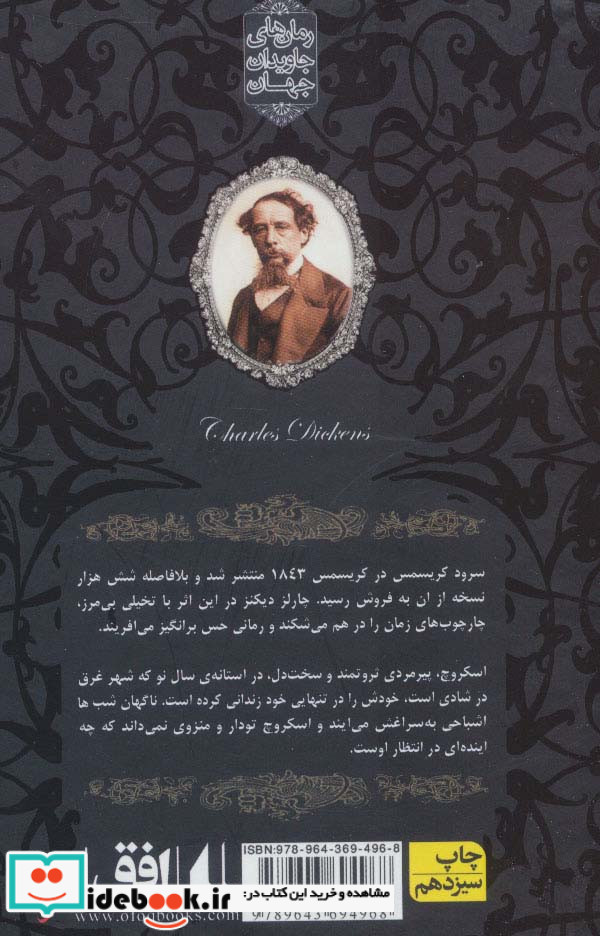 رمان‌های
جاویدان
جهان
Charles Dickens
سرود کریسمس در کریسمس ۱۸٤۳ منتشر شد و بلافاصله شش هزار
نسخه از ان به فروش رسید. چارلز دیکنز در این اثر با تخیلی بی‌مرز،
چارچوب‌های زمان را در هم می‌شکند و رمانی حس برانگیز می‌افریند.
اسکروچ، پیرمردی ثروتمند و سخت‌دل، در استانه‌ی سال نو که شهر غرق
در شادی است، خودش را در تنهایی خود زندانی کرده است. ناگهان شب ها
اشباحی به‌سراغش می‌ایند و اسکروچ تودار و منزوی نمی‌داند که چه
اینده‌ای در انتظار اوست.
ISBN:978-964-369-496-8
چاپ
سیزدهم
افق
مشاهده و خرید این کتاب در:
idebook.ir
www.ofoqbooks.com
9 789643 694968